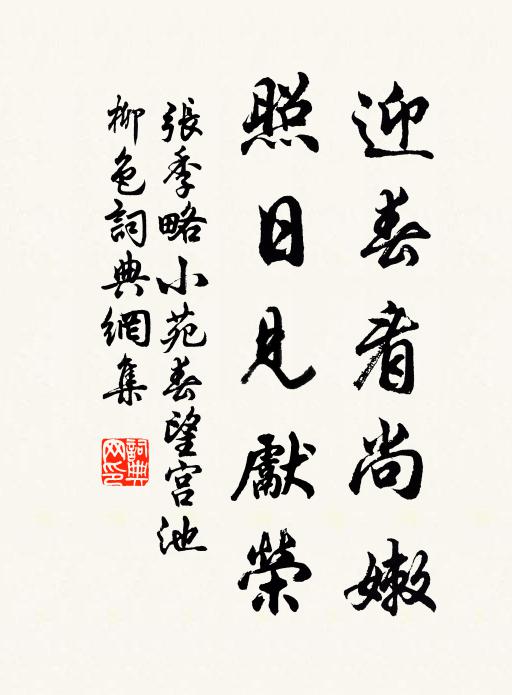 迎春看尚嫩
照日見獻榮
張季略小苑春望宮池
柳色詞典網集
詞典網印